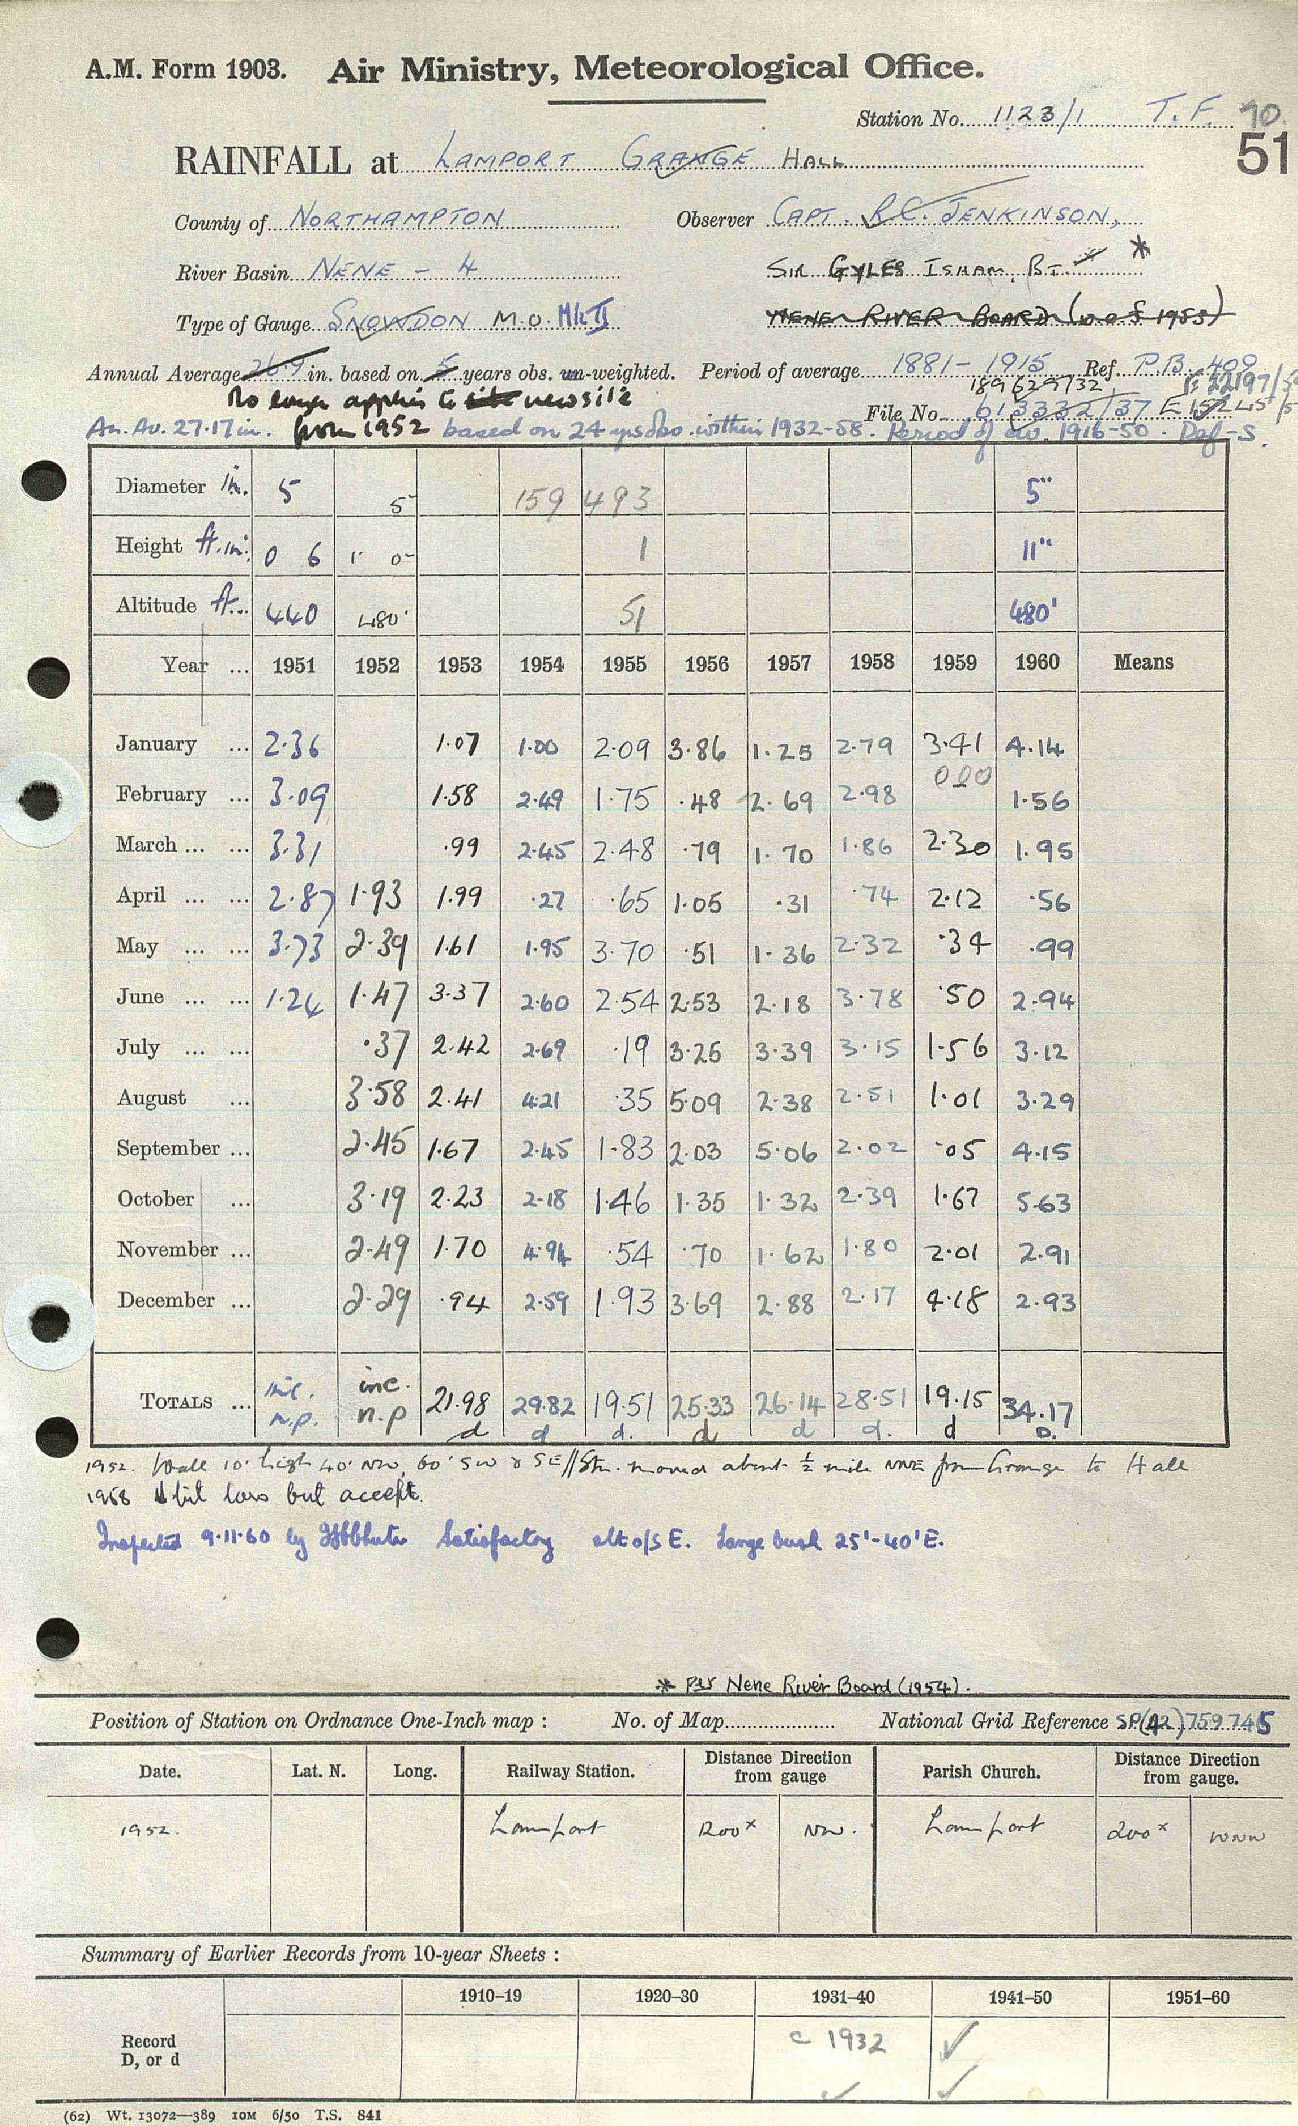 A.M. Form 1903. Air Ministry, Meteorological Office.
Station No. 1123/1 T.F. 90.
51
RAINFALL at LAMPORT GRANGE HALL
County of NORTHAMPTON Observer CAPT. R.C. JENKINSON,
River Basin NENE - 4 SIR GYLES ISHAM, BT. *
Type of Gauge SNOWDON M.O. MkII NENE RIVER BOARD (1953)
Annual Average 26.7 in. based on 5 years obs. un-weighted. Period of average 1881-1915 Ref. P.B. 409
No longer applies to site new site 189 629/32
from 1952 File No. 613332/37
An. Av. 27.17in. based on 24 yrs obs. within 1932-58. Period of av. 1916-50. Def-S.
Diameter in. 5 5 159 493 5"
Height ft. in. 0 6 1' 0 1 11"
Altitude ft... 440 480' 51 480'
Year ... 1951 1952 1953 1954 1955 1956 1957 1958 1959 1960 Means
January ... 2.36 1.07 1.00 2.09 3.86 1.25 2.79 3.41 4.14
February ... 3.09 1.58 2.49 1.75 .48 2.69 2.98 000 1.56
March ... ... 3.31 .99 2.45 2.48 .79 1.70 1.86 2.30 1.95
April ... ... 2.87 1.93 1.99 .27 .65 1.05 .31 .74 2.12 .56
May ... ... 3.73 2.39 1.61 1.95 3.70 .51 1.36 2.32 .34 .99
June ... ... 1.24 1.47 3.37 2.60 2.54 2.53 2.18 3.78 .50 2.94
July ... ... .37 2.42 2.69 .19 3.25 3.39 3.15 1.56 3.12
August ... 3.58 2.41 4.21 .35 5.09 2.38 2.51 1.01 3.29
September ... 2.45 1.67 2.45 1.83 2.03 5.06 2.02 .05 4.15
October ... 3.19 2.23 2.18 1.46 1.35 1.32 2.39 1.67 5.63
November ... 2.49 1.70 4.94 .54 .70 1.62 1.80 2.01 2.91
December ... 2.29 .94 2.59 1.93 3.69 2.88 2.17 4.18 2.93
TOTALS ... inc. n.p. inc. n.p 21.98 29.82 19.51 25.33 26.14 28.51 19.15 34.17
d d d. d d d. d D.
1952. Wall 10' high 40' NW, 60' SW & SE // Stn. moved about ½ mile NNE from Grange to Hall
1958 A bit low but accept.
Inspected 9.11.60 by Satisfactory alt o/s E. Large bush 25'-40'E.
* Per Nene River Board (1954).
Position of Station on Ordnance One-Inch map : No. of Map National Grid Reference SP(42) 759 745
Date. Lat. N. Long. Railway Station. Distance Direction from gauge Parish Church. Distance Direction from gauge.
1952. Lamport 1200x NW. Lamport 200x WNW
Summary of Earlier Records from 10-year Sheets :
1910-19 1920-30 1931-40 1941-50 1951-60
Record D, or d c 1932 ✓
✓ ✓
(62) Wt. 13072—389 10M 6/50 T.S. 841